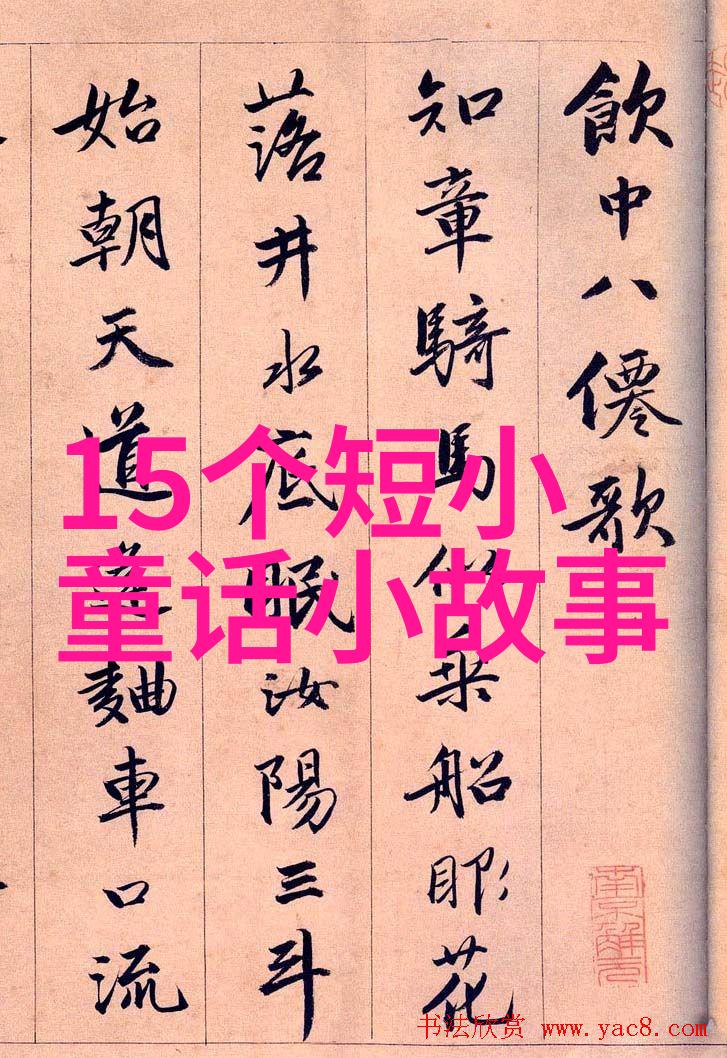 飲中八僊歌
知章騎馬似乗船眼花
落井水底眠汝陽三斗
始朝天道逢麯車口流
15个短小
童话小故事
南京解元
书法欣赏 www.yac8.com